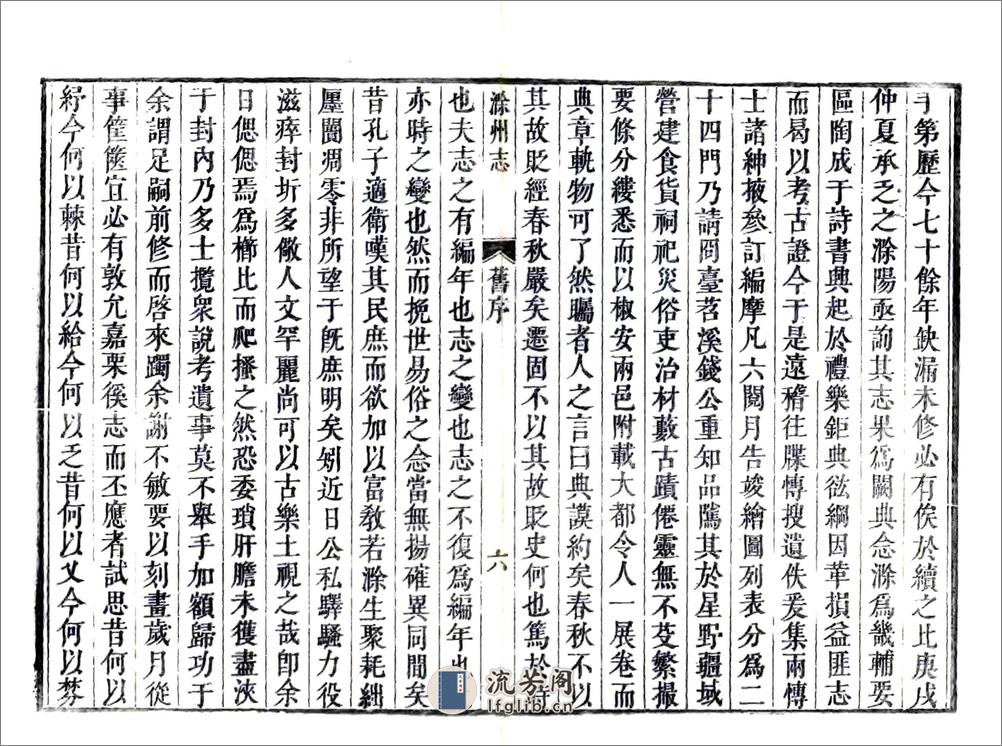 于第歷今七十餘年缺漏未修必有俟於續之比庚戌
仲夏承乏之滁陽亟詢其志果爲闕典念滁爲畿輔要
區陶成于詩書典起於禮樂鉅典弦綱因革損益匪志
而曷以考古證今于是遠稽往牒慱搜遺佚爰集兩慱
士諸紳掖參訂編摩凡六閱月告竣繪圖列表分為二
十四門乃請冏臺苕溪錢公重知品隲其於星野疆域
營建食貨祠祀災俗吏治材藪古蹟僊靈無不芟繁撮
要條分縷悉而以椒安兩邑附載大都令人一展卷而
典章軌物可了然矚者人之言曰典謨約矣春秋不以
其故貶經春秋嚴矣遷固不以其故貶史何也篤於待
滁州志
舊序
六
也夫志之有編年也志之變也志之不復爲編年也
亦時之變也然而挽世易俗之念當無揚確異同間矣
昔孔子適衛嘆其民庶而欲加以富敎若滁生聚耗絀
廛閭凋零非所望于旣庶明矣矧近日公私驛騷力役
滋瘁封圻多儆人文罕麗尚可以古樂土視之哉卽余
日偲偲焉爲櫛比而爬搔之然恐委瑣肝膽未獲盡浹
于封內乃多士攬衆說考遺事莫不舉手加額歸功于
余謂足嗣前修而啓來躅余謝不敏要以刻畫歲月從
事筐篋宜必有敦允嘉栗徯志而丕應者試思昔何以
紓今何以棘昔何以給今何以乏昔何以乂今何以棼
流芳阁
lfglib.cn